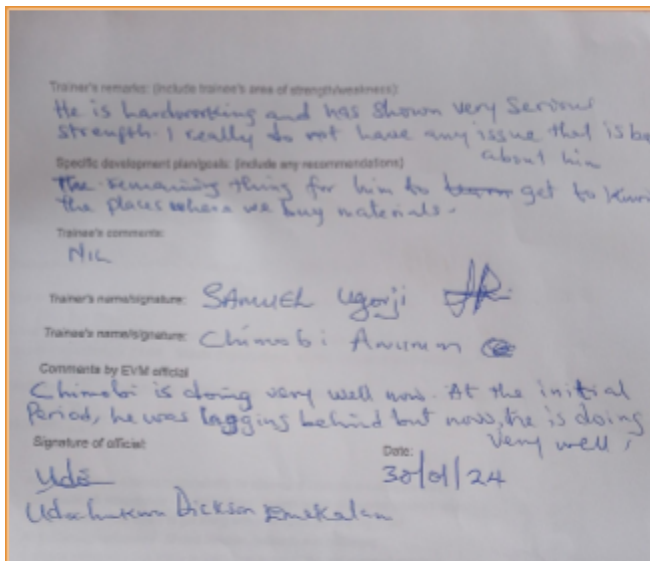 Trainer's remarks: (Include trainee's area of strength/weakness):
He is hardworking and has shown very serious
strength. I really do not have any issue that is
about him
Specific development plan/goals: (include any recommendations)
The remaining thing for him to get to
the places where we buy materials.
Trainee's comments:
NIL
Trainer's name/signature: SAMUEL Ugorji
Trainee's name/signature: Chimobi
Comments by EVM official
Chimobi is doing very well now. At the initial
Period, he was lagging behind but now, he is doing
very well,
Signature of official: Date:
Udo 30/01/24
Dickson